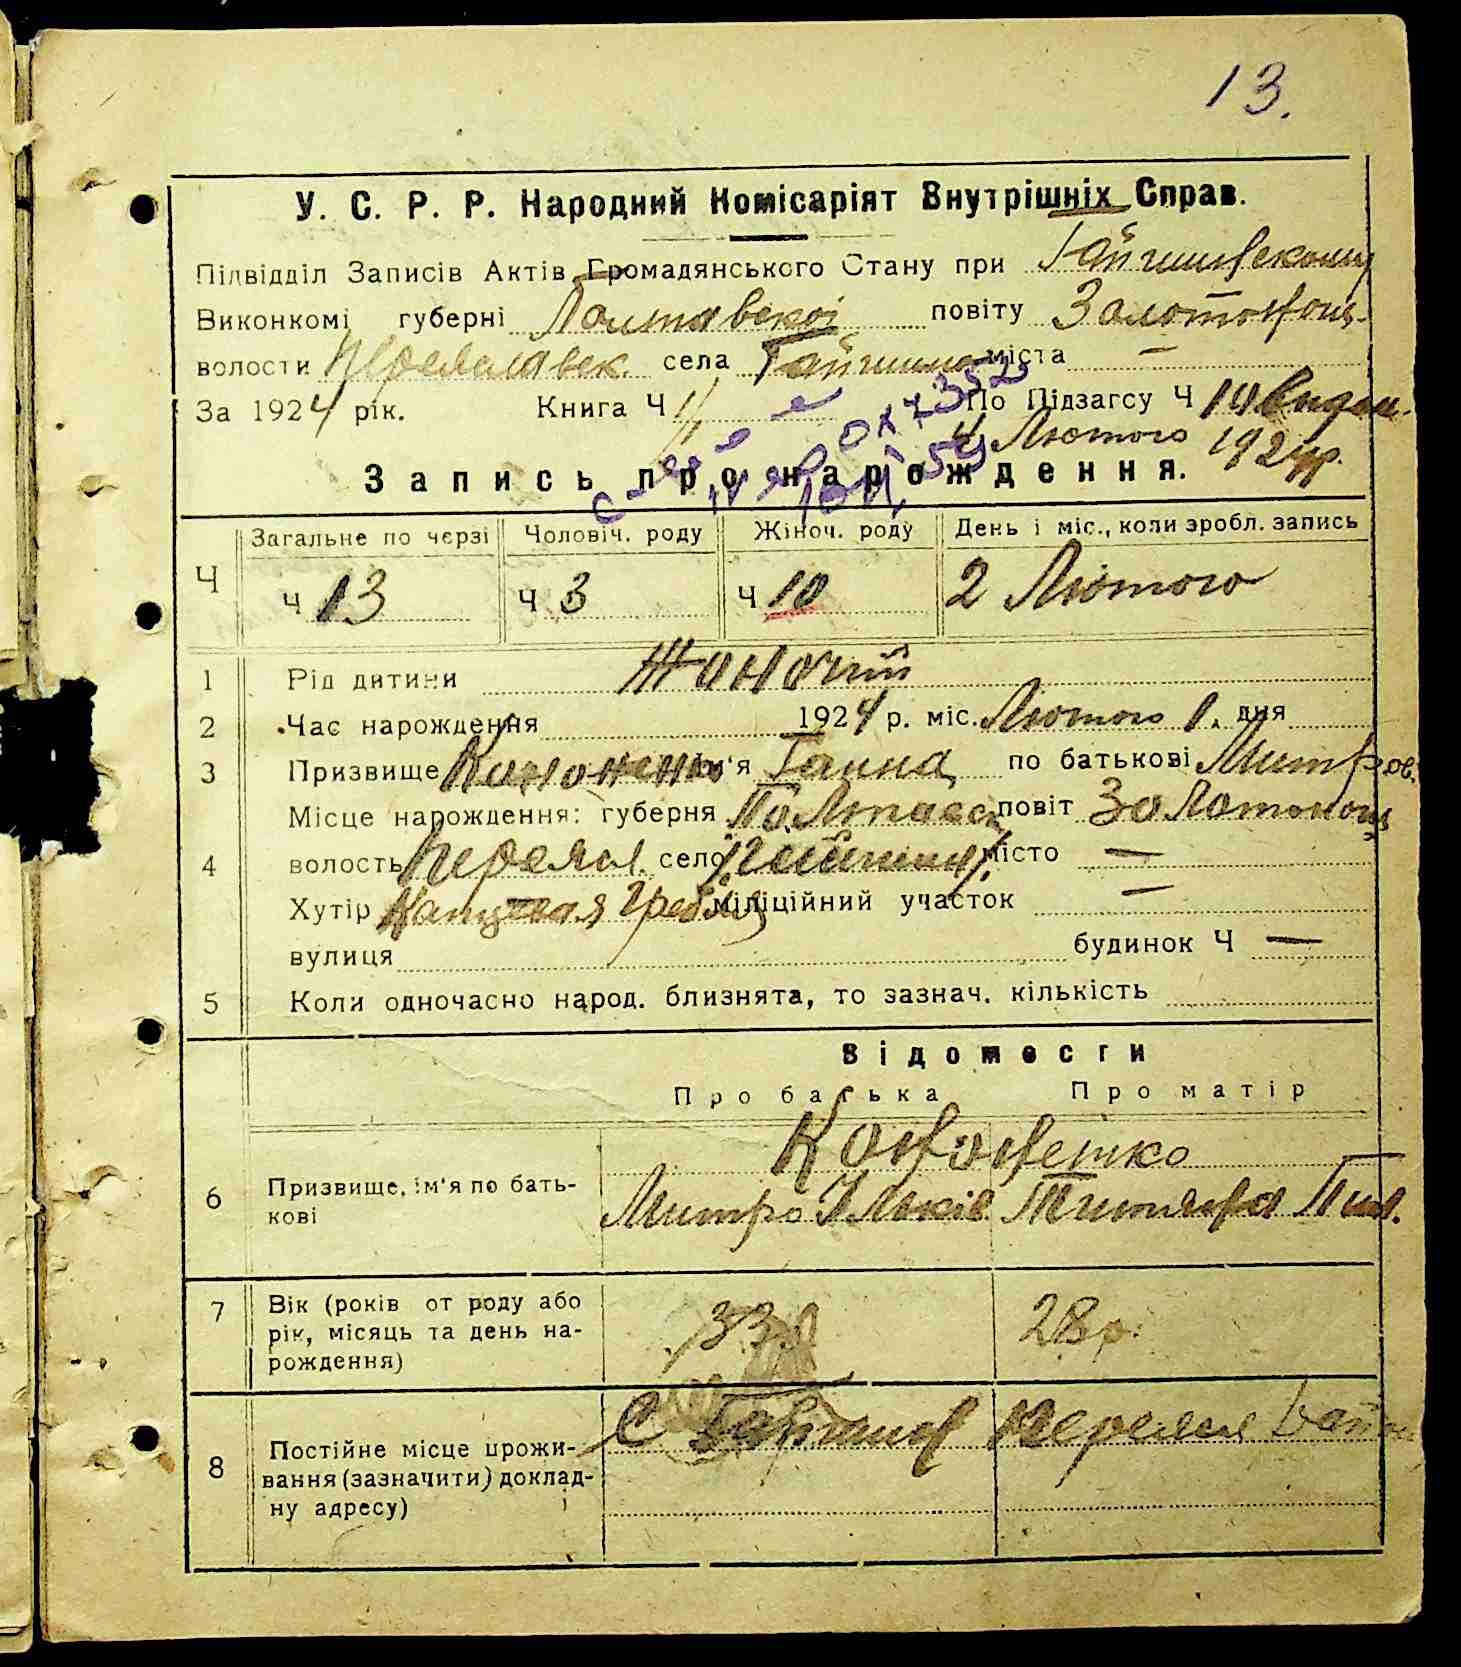 13.
У. С. Р. Р. Народний Комісаріят Внутрішніх Справ.
Підвідділ Записів Актів Громадянського Стану при Гайшинському
Виконкомі губерні Полтавської повіту Золотонош.
волости Переяславск. села Гайшина міста —
За 1924 рік. Книга Ч 1 По Підзагсу Ч 10
4 Лютого 1924 р.
Запись про народждення.
Загальне по черзі Чоловіч. роду Жіноч. роду День і міс., коли зробл. запись
Ч Ч 13 Ч 3 Ч 10 2 Лютого
1 Рід дитини Жоночий
2 Час народждення 1924 р. міс. Лютого 1. дня
3 Призвище Кононенко Ім'я Ганна по батькові Митров.
Місце народждення: губерня Полтавск повіт Золотонош
4 волость Переясл. село Гайшин місто —
Хутір Гребля міліційний участок —
вулиця будинок Ч —
5 Коли одночасно народ. близнята, то зазнач. кількість
Відомости
Про батька Про матір
Кононенко
6 Призвище, ім'я по бать- Митро Ільків Титяна Пил.
кові
7 Вік (років от роду або 33 28 р.
рік, місяць та день на-
рождення)
С Гайшин Переясл
8 Постійне місце прожи-
вання (зазначити) доклад-
ну адресу)